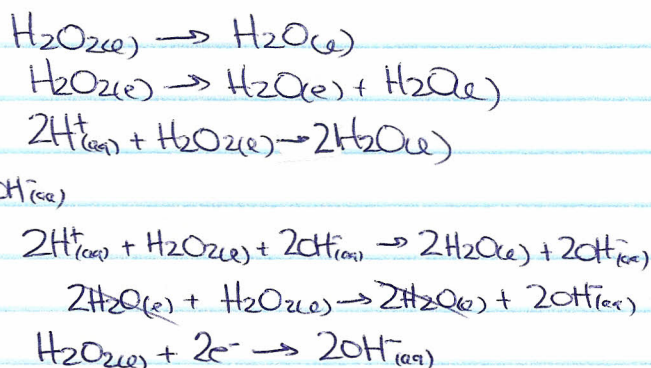 H₂O₂(l) → H₂O(l)
H₂O₂(l) → H₂O(l) + H₂O(l)
2H⁺(aq) + H₂O₂(l) → 2H₂O(l)
OH⁻(aq)
2H⁺(aq) + H₂O₂(l) + 2OH⁻(aq) → 2H₂O(l) + 2OH⁻(aq)
2H₂O(l) + H₂O₂(l) → 2H₂O(l) + 2OH⁻(aq)
H₂O₂(l) + 2e⁻ → 2OH⁻(aq)